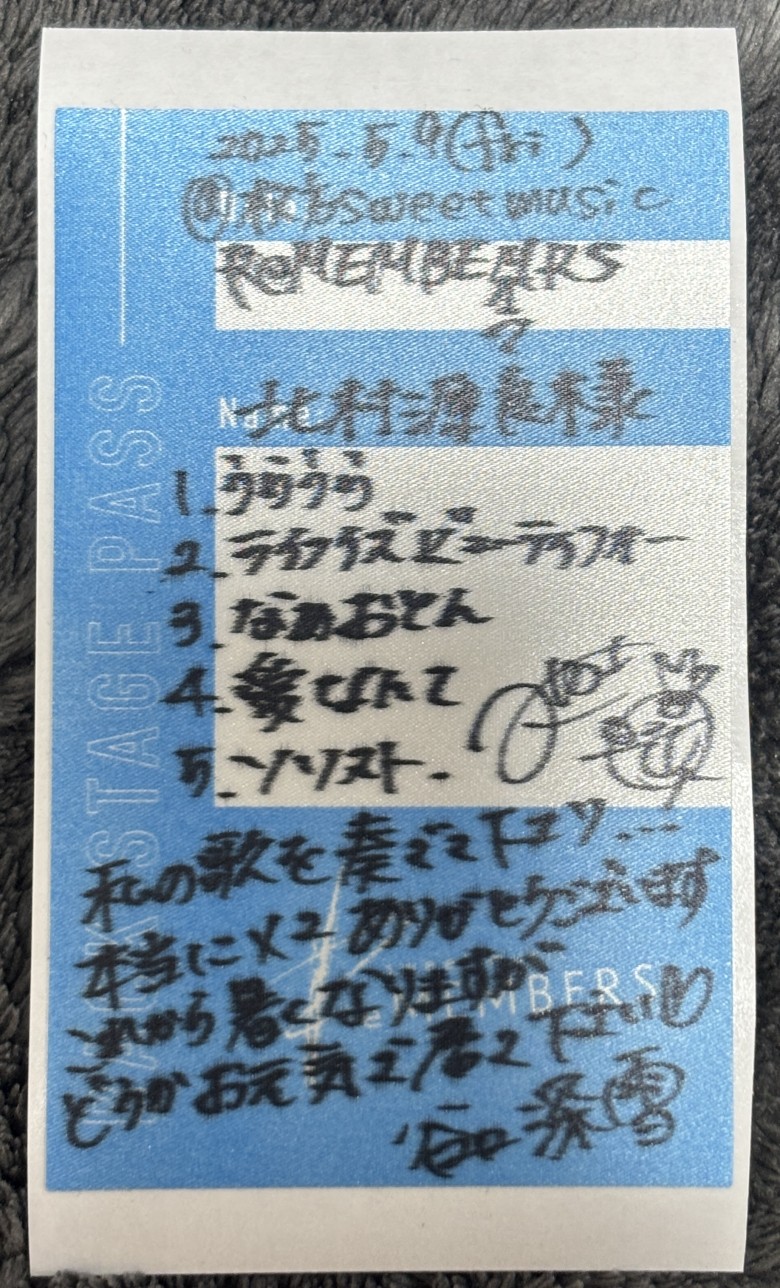 2025.5.9(fri)
@枚方sweet music
ReMEMBERS
Name
北村源良様
1.うううう
2.ライフイズビューティフォー
3.なぁおとん
4.愛したて
5.ソリスト.
私の歌を奏でて下さり...
本当に×2ありがとうございます
これから暑くなりますが
どうかお元気で居て下さい
谷口深雪
BACKSTAGE PASS
ReMEMBERS